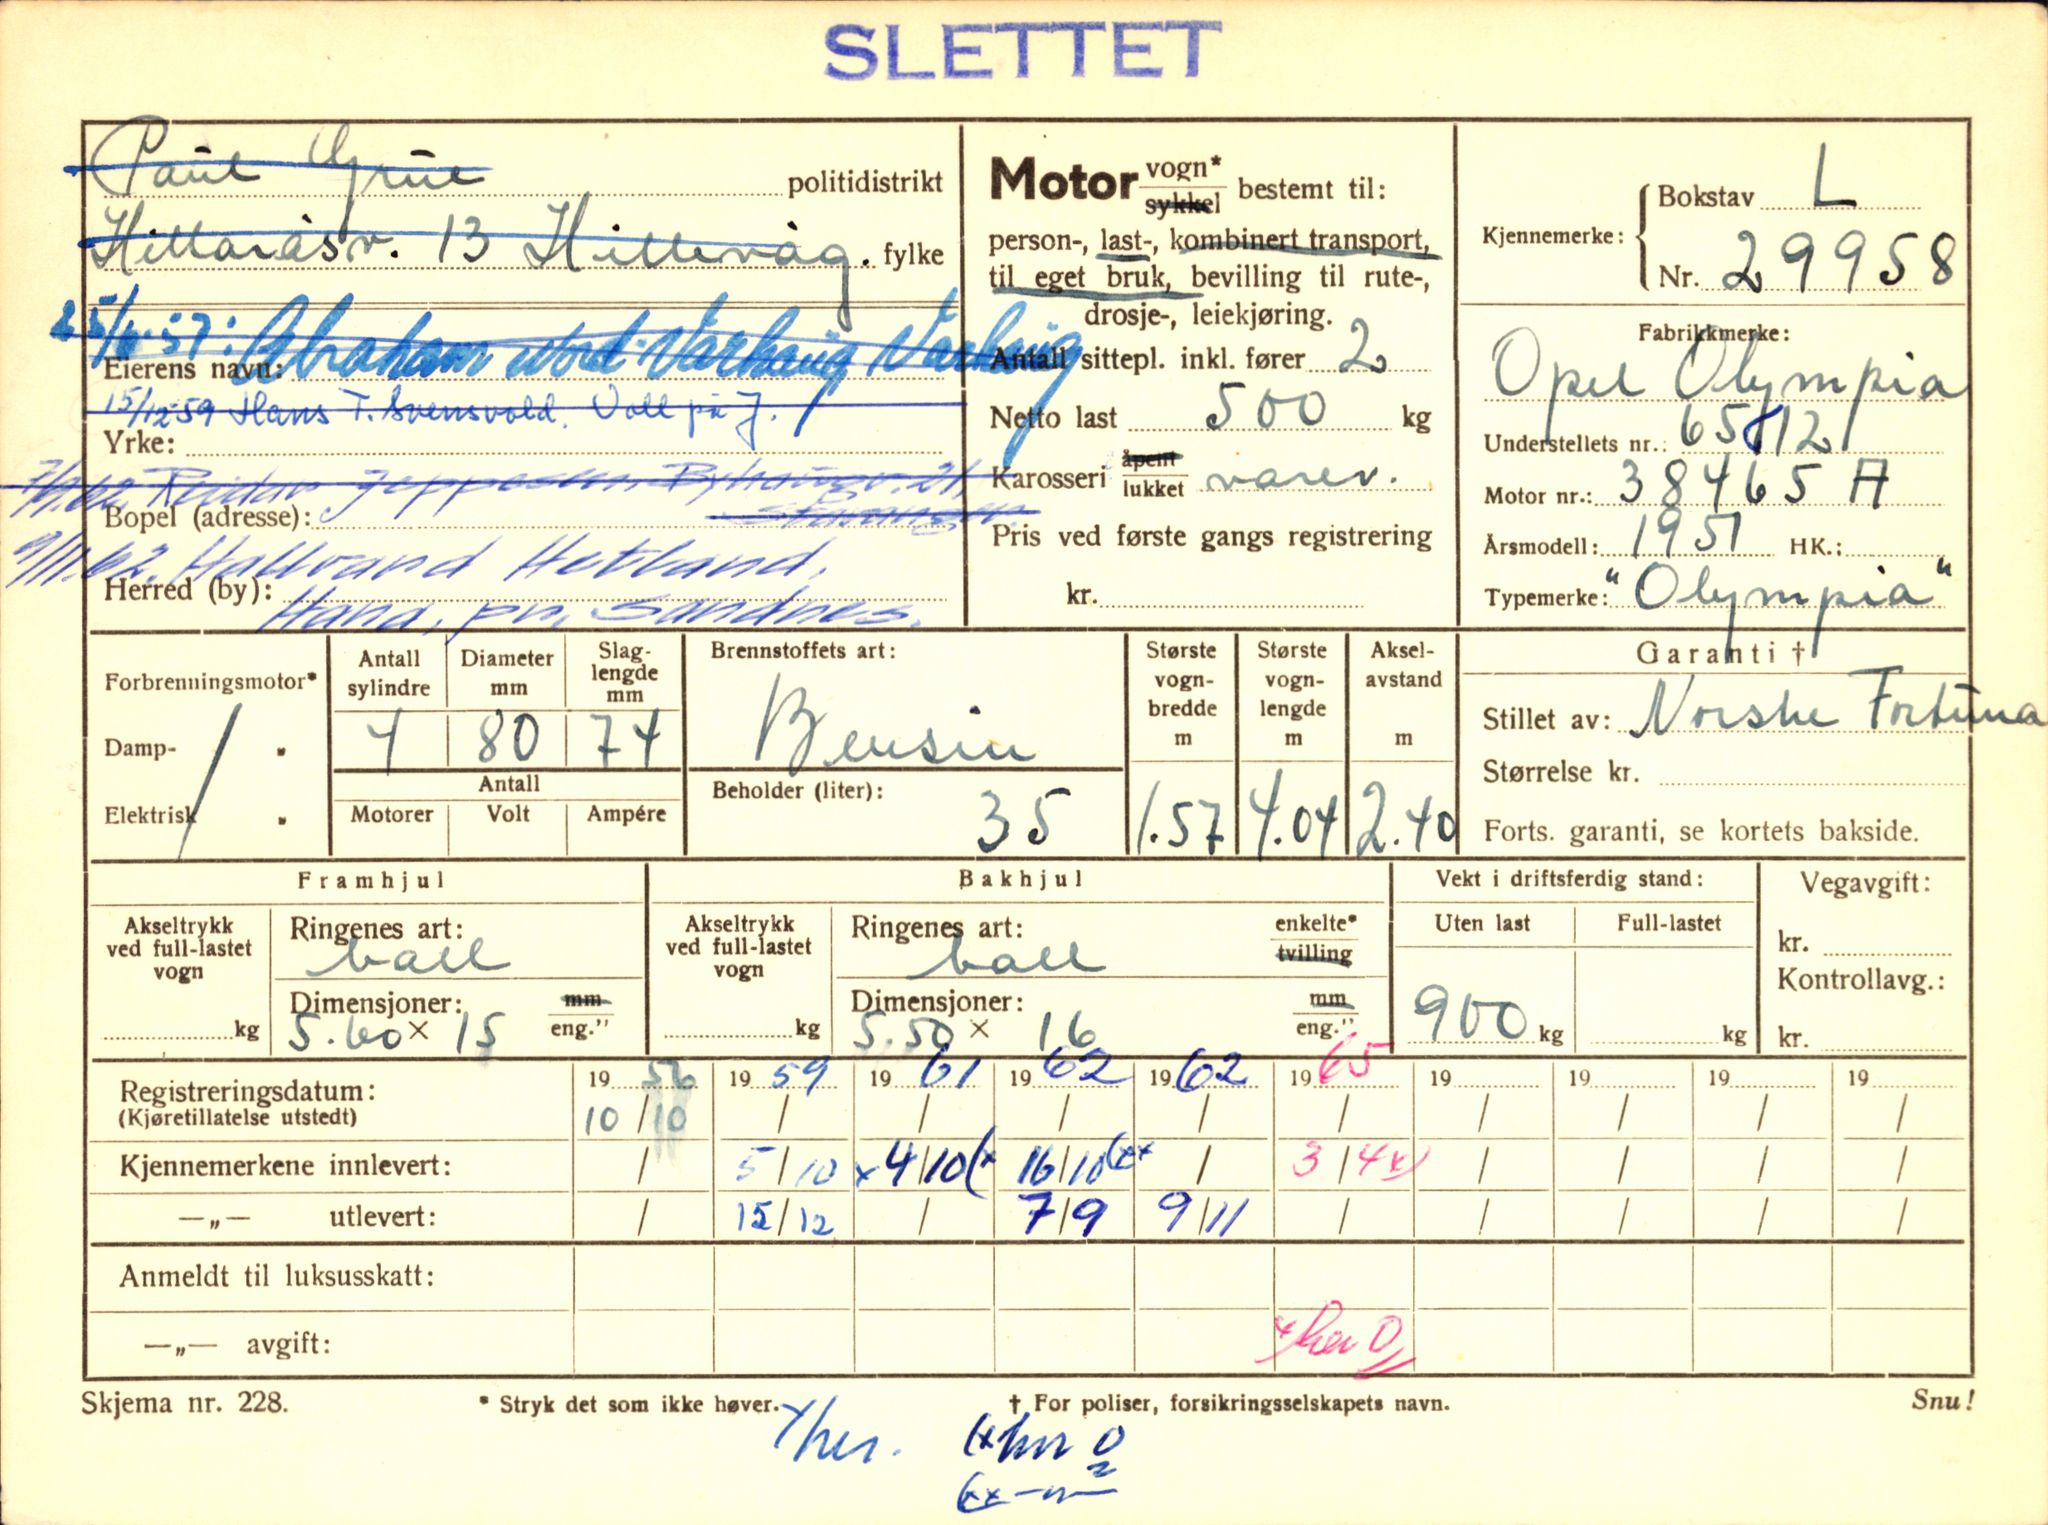 SLETTET
Paul Grue
politidistrikt
Hillaråsv. 13 Hillevåg.
fylke
25/6-57: Abraham Nord-Varhaug Varhaug
Eierens navn:
15/12 59 Hans T. Svensvold. Voll på J.
Yrke:
7/9.62 Reidar Jeppesen, 21,
Bopel (adresse): Stavanger.
9/11.62. Hallvard Hetland,
Herred (by): Hana, pr. Sandnes.
Motor vogn* sykkel bestemt til:
person-, last-, kombinert transport,
til eget bruk, bevilling til rute-,
drosje-, leiekjøring.
Antall sittepl. inkl. fører 2
Netto last 500 kg
Karosseri åpent lukket varev.
Pris ved første gangs registrering
kr.
Kjennemerke: Bokstav L
Nr. 29958
Fabrikkmerke:
Opel Olympia
Understellets nr.: 65812
Motor nr.: 38465 A
Årsmodell: 1951 HK.:
Typemerke: "Olympia"
Forbrenningsmotor*
Damp- "
Elektrisk "
Antall sylindre 4
Diameter mm 80
Slag-lengde mm 74
Antall
Motorer Volt Ampére
Brennstoffets art:
Bensin
Beholder (liter):
35
Største vogn-bredde m 1.57
Største vogn-lengde m 4.04
Aksel-avstand m 2.40
Garanti †
Stillet av: Norske Fortuna
Størrelse kr.
Forts. garanti, se kortets bakside.
Framhjul
Akseltrykk ved full-lastet vogn
kg
Ringenes art:
ball
Dimensjoner: mm
5.60 × 15 eng."
Bakhjul
Akseltrykk ved full-lastet vogn
kg
Ringenes art: enkelte* tvilling
ball
Dimensjoner: mm
5.50 × 16 eng."
Vekt i driftsferdig stand:
Uten last Full-lastet
900 kg kg
Vegavgift:
kr.
Kontrollavg.:
kr.
Registreringsdatum: 19 56 19 59 19 61 19 62 19 62 19 65 19 19 19 19
(Kjøretillatelse utstedt) 10/10 / / / / / / / / /
Kjennemerkene innlevert: / 5/10 x4/10(x 16/10(xx / 3/4x) / / / /
—„— utlevert: / 15/12 / 7/9 9/11 / / / / /
Anmeldt til luksusskatt:
—„— avgift: x her O
Skjema nr. 228. * Stryk det som ikke høver. † For poliser, forsikringsselskapets navn. Snu!
x her. (x her O
(xx —"—